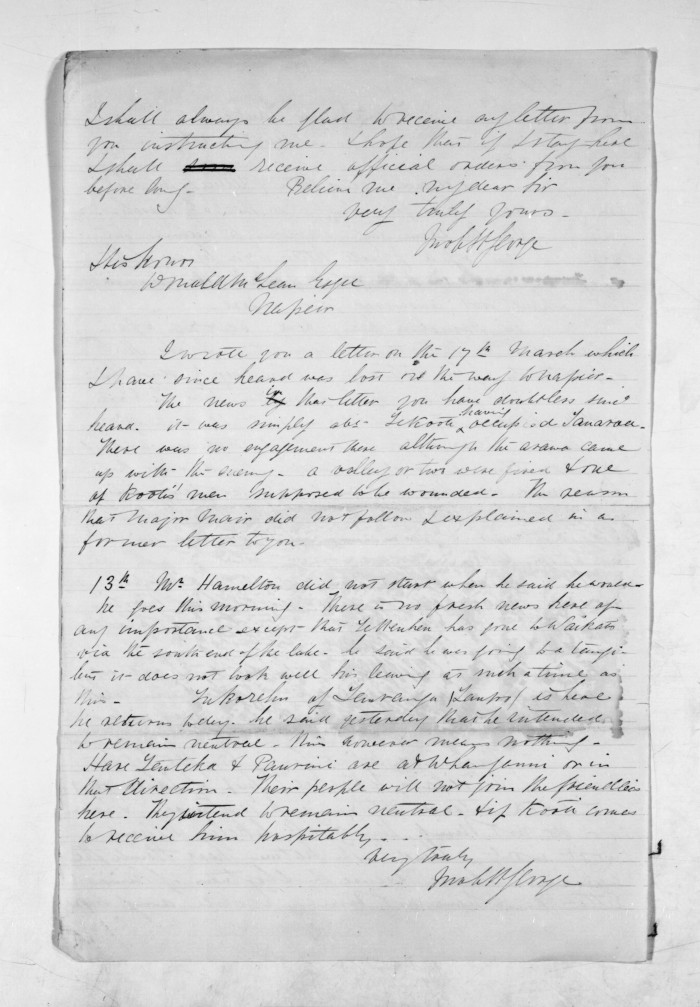 I shall always be glad to receive any letter from
you instructing me. I hope that if I stay here
I shall receive official orders from you
before long. Believe me my dear Sir
very truly yours -
His Honor
Donald McLean Esqre
Napier
I wrote you a letter on the 17th March which
I have since heard was lost on the way to Napier -
The news in that letter you have doubtless since
heard. it was simply abt Te Kooti having occupied Tauranga.
There was no engagement there although the arawa came
up with the enemy. a volley or two were fired & one
of Kooti's men supposed to be wounded. The reason
that Major Mair did not follow I explained in a
former letter to you.
13th Mr. Hamelton did not start when he said he would -
he goes this morning. There is no fresh news here of
any importance except that has gone to Waikato
via the south end of the lake. he said he was going to a tangi
but it does not look well his leaving at such a time as
this - of Tauranga (Taupo) is here
he returns today. he said yesterday that he intended
to remain neutral. this however means nothing -
Hare & are at or in
that direction. Their people will not join the friendlies
here. They intend to remain neutral. & if Kooti comes
to receive him hospitably. . .
very truly